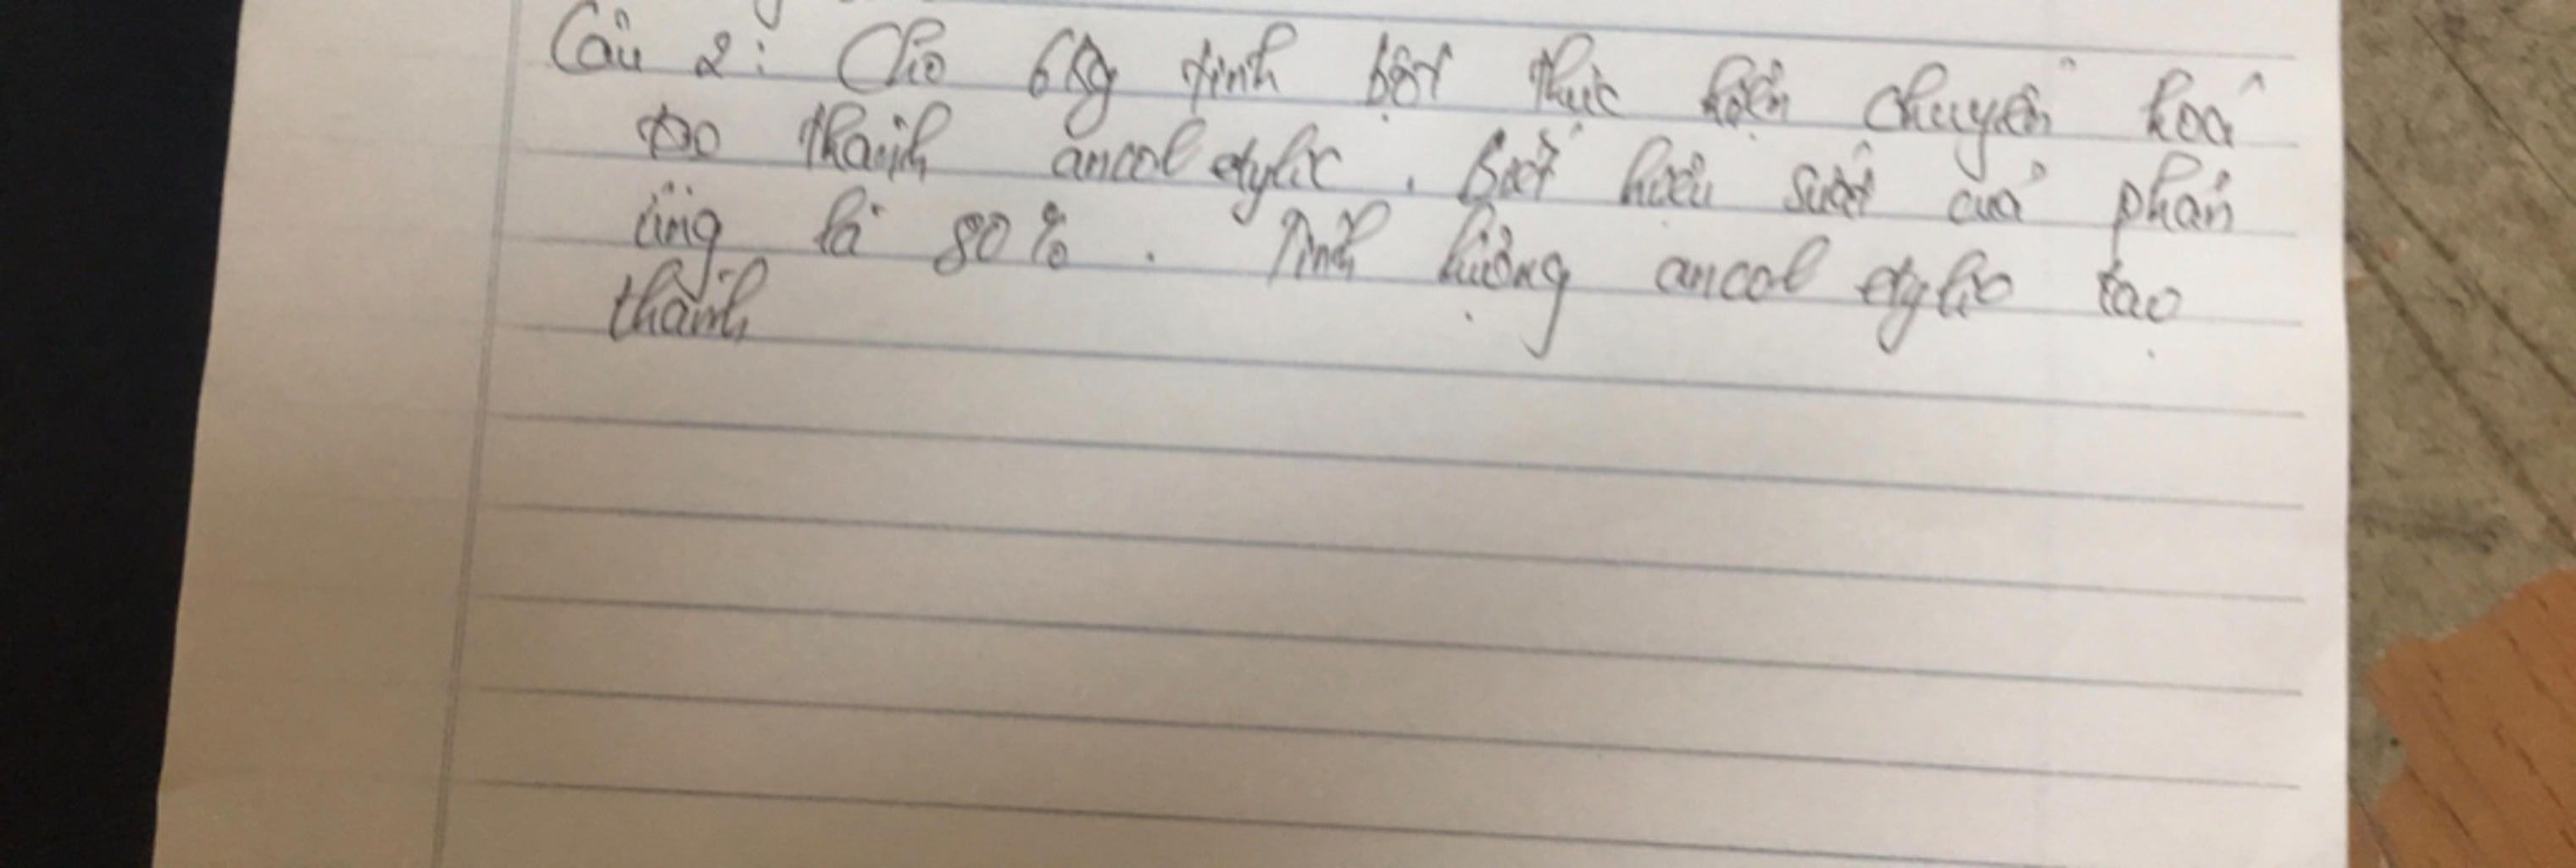 Câu 2: Cho 6kg tinh bột thực hiện chuyển hoá
tạo thành ancol etylic. Biết hiệu suất của phản
ứng là 80%. Tính lượng ancol etylic tạo
thành